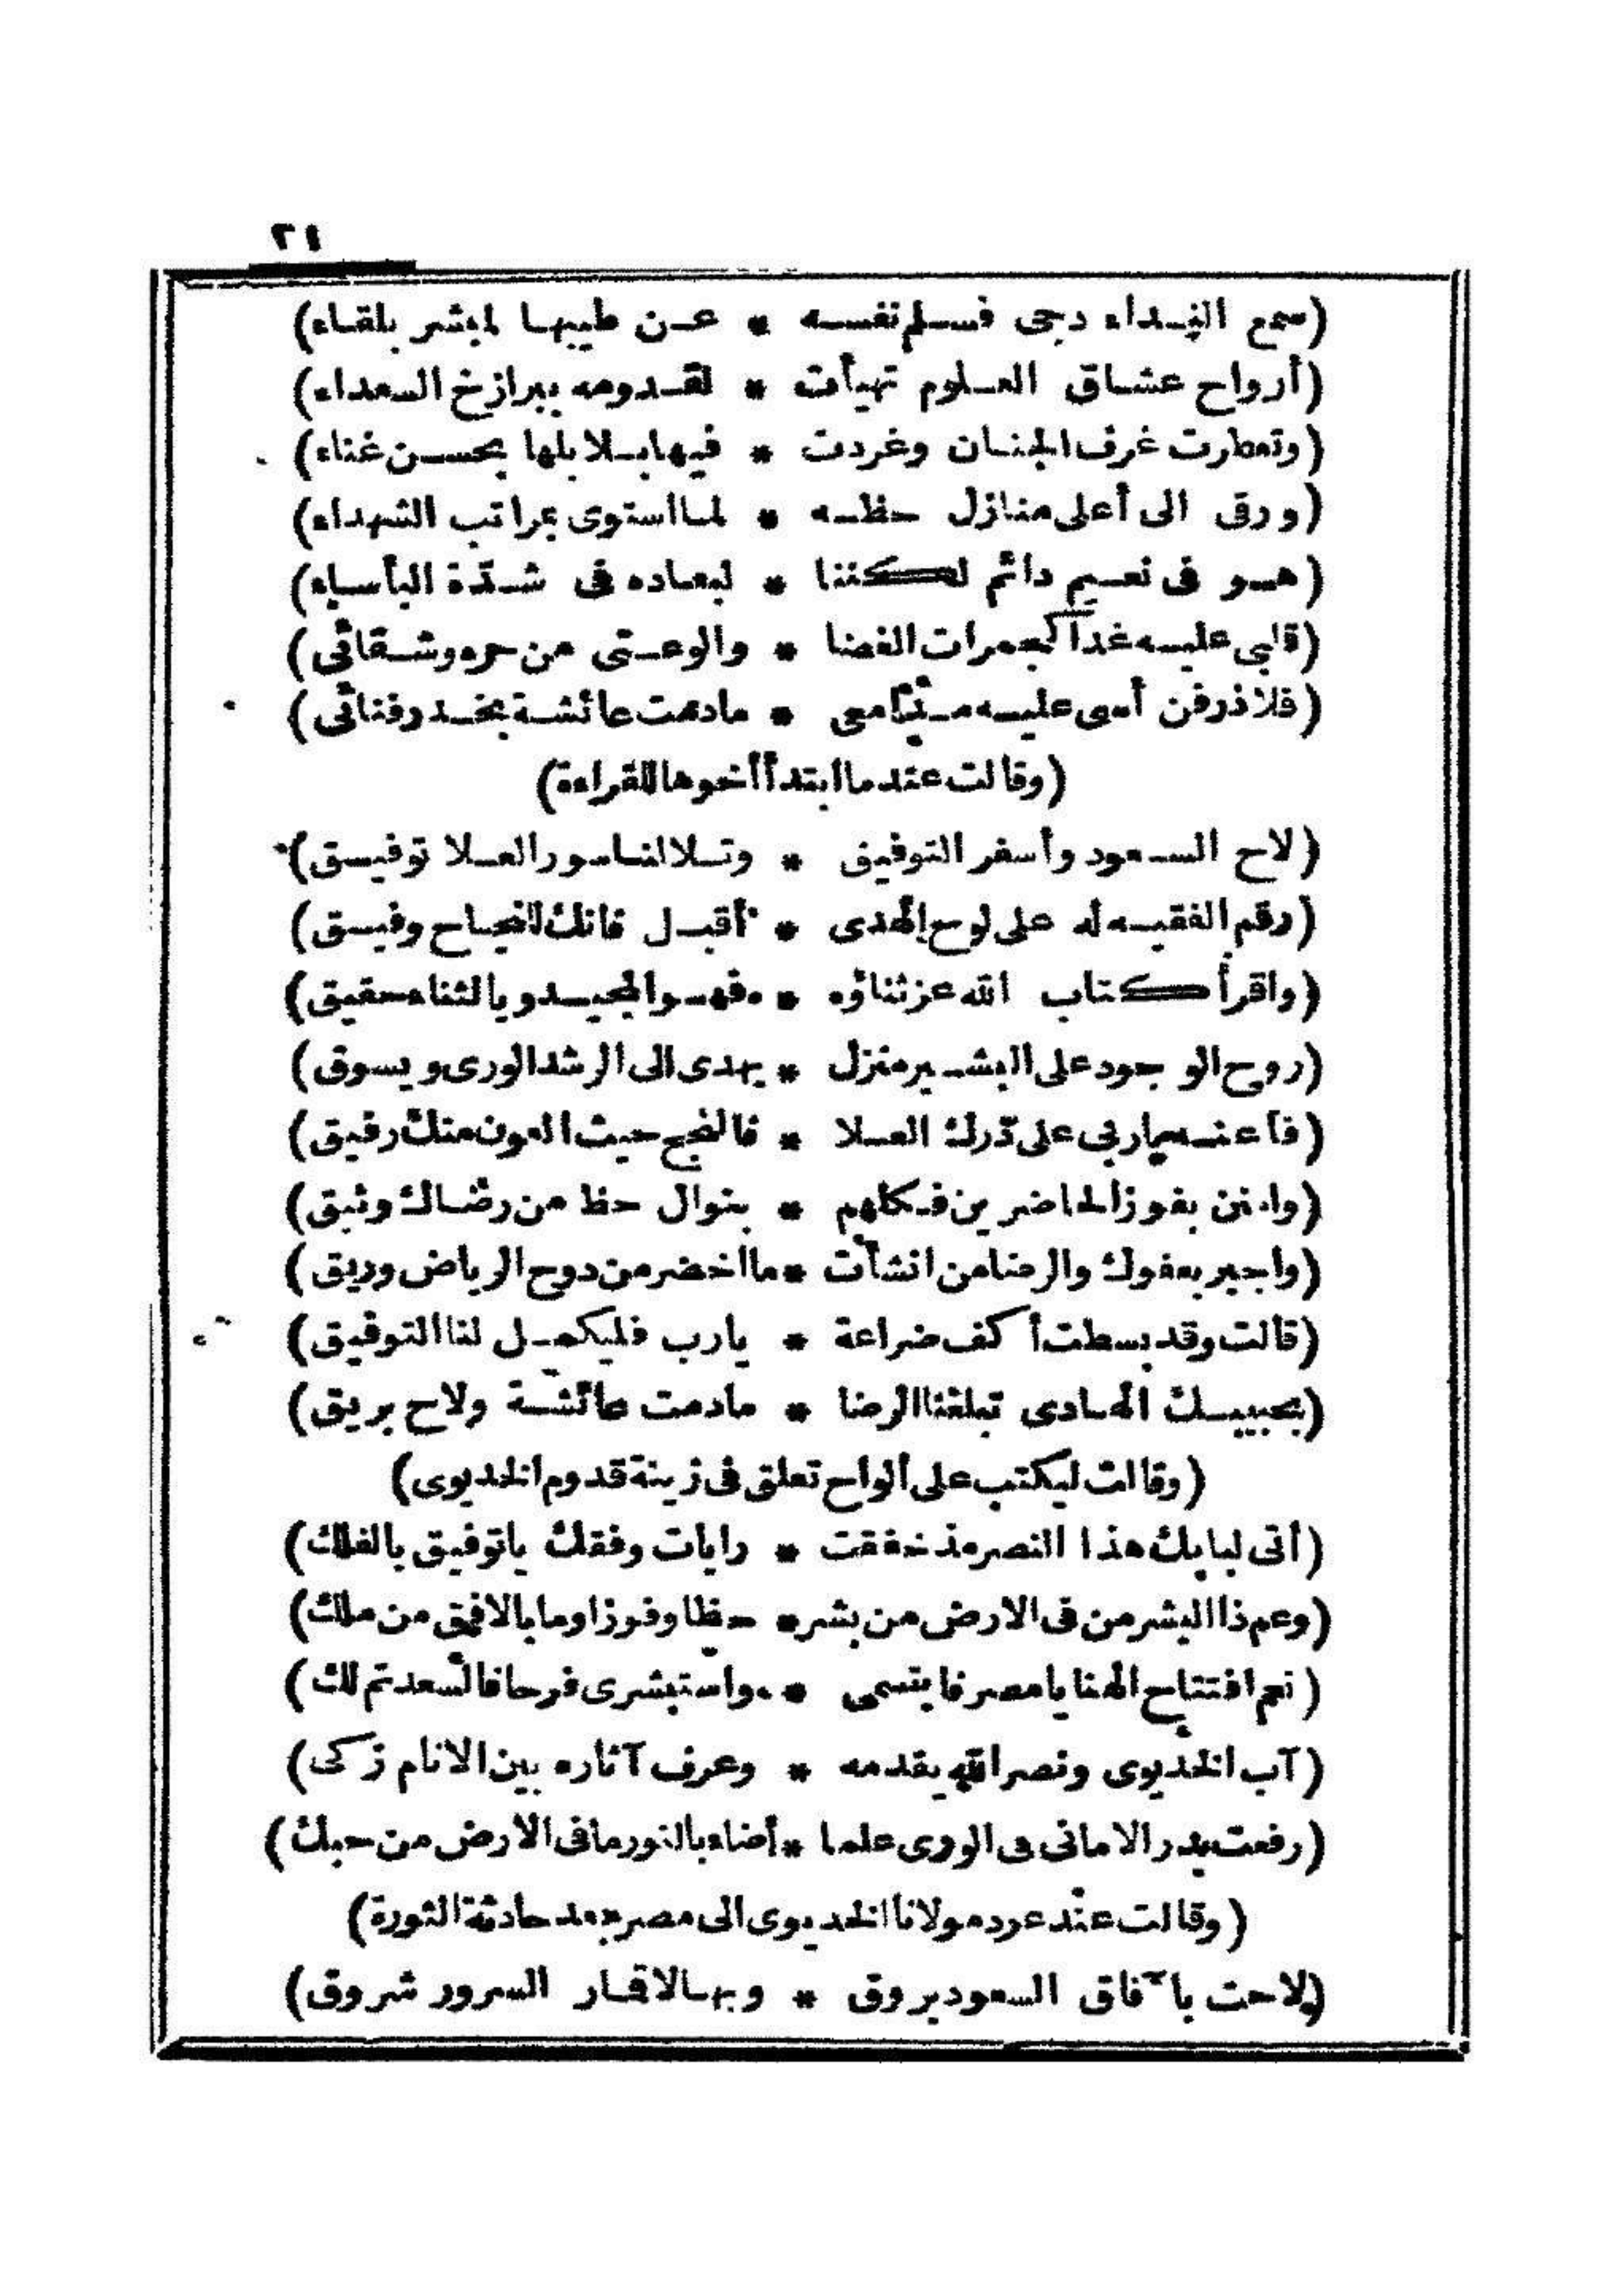 ٢١
(سمع النداء دجى فسلم نفسه * عن طيبها لمبشر بلقاء)
(أرواح عشاق العلوم تهيأت * لقدومه ببرازخ السعداء)
(وتعطرت غرف الجنان وغردت * فيها بلابلها بحسن غناء)
(ورقى الى أعلى منازل حظه * لما استوى بمراتب الشهداء)
(هو فى نعيم دائم لكننا * لبعاده فى شدّة البأساء)
(قلبى عليه غدا كجمرات الغضا * والوعتى من حره وشقائى)
(فلا ذرفن أسى عليه مدامعى * مادمت عائشة بخدر فنائى)
(وقالت عند ما ابتدأ أخوها للقراءة)
(لاح السعود وأسفر التوفيق * وتلالنا سور العلا توفيق)
(رقم الفقيه له على لوح الهدى * أقبل فانك للنجاح وفيق)
(واقرأ كتاب الله عز ثناؤه * فهو المجيد وبالثناء حقيق)
(روح الوجود على البشير منزل * يهدى الى الرشد الورى ويسوق)
(فأعنه يارب على درك العلا * فالنجح حيث العون منك رفيق)
(وامنن بفوز الحاضرين فكلهم * بنوال حظ من رضاك وثيق)
(واجبر بعفوك والرضا من انشأت * ما اخضر من دوح الرياض وريق)
(قالت وقد بسطت أكف ضراعة * يارب فليكمل لنا التوفيق)
(بحبيبك الهادى تبلغنا الرضا * مادمت عائشة ولاح بريق)
(وقالت ليكتب على ألواح تعلق فى زينة قدوم الخديوى)
(أتى لبابك هذا النصر مذ خفقت * رايات وفقك ياتوفيق بالفلك)
(وعم ذا البشر من فى الارض من بشر * حظا وفوزا وما بالافق من ملك)
(نعم افتتاح الهنا يامصر فابتسمى * واستبشرى فرحا فالسعد تم لك)
(آب الخديوى ونصر الله يقدمه * وعرف آثاره بين الانام زكى)
(رفعت بدر الامانى فى الورى علما * أضاء بالنور ما فى الارض من حبك)
(وقالت عند عود مولانا الخديوى الى مصر بعد حادثة الثورة)
(لاحت بآفاق السعود بروق * وبها لاقمار السرور شروق)